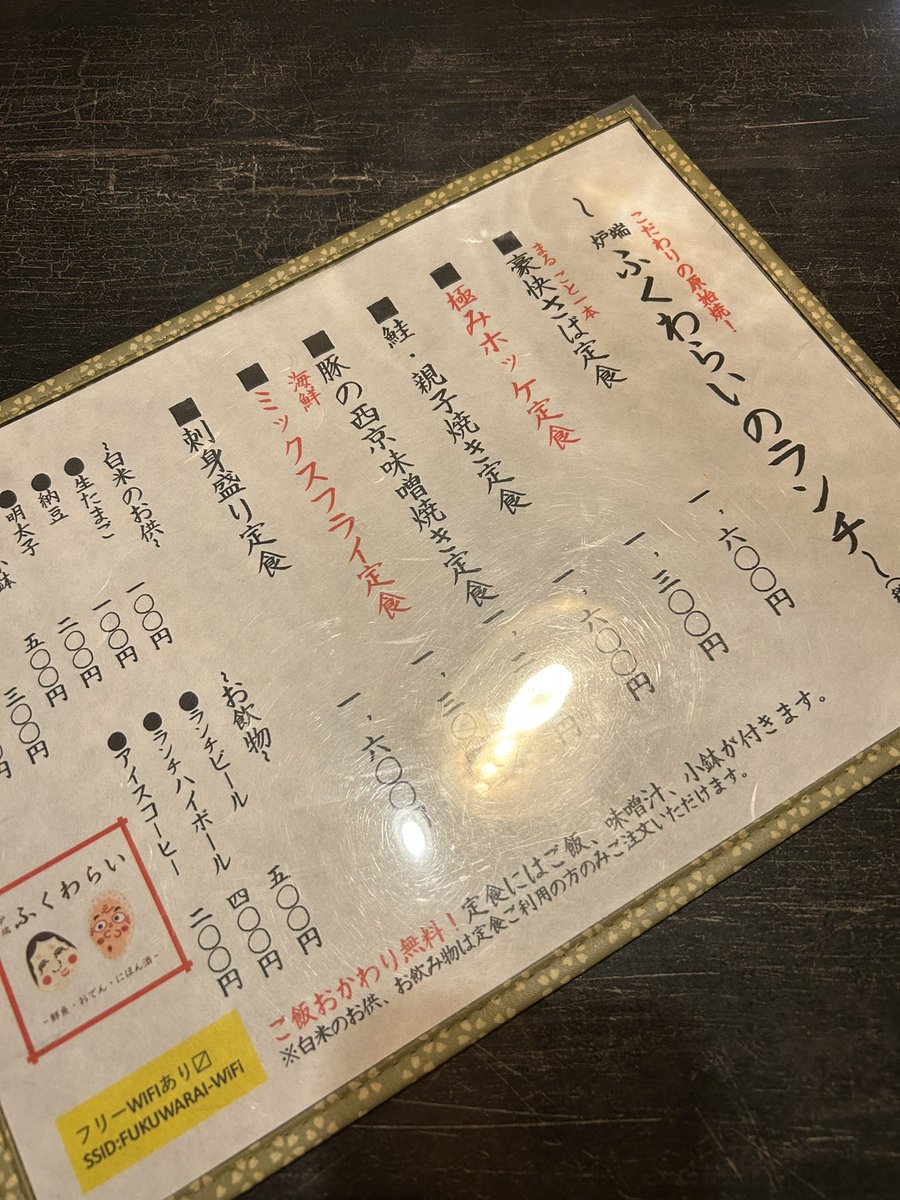 こだわりの原始焼！
～炉端 ふくわらいのランチ～
まるごと一本
■豪快さば定食 一，六〇〇円
■極みホッケ定食 一，三〇〇円
■鮭・親子焼き定食 一，六〇〇円
■豚の西京味噌焼き定食 円
海鮮
■ミックスフライ定食 一，三〇
■刺身盛り定食 一，六〇〇円
～白米のお供～
●生たまご 一〇〇円
●納豆 一〇〇円
●明太子 二〇〇円
鉢 五〇〇円
三〇〇円
～お飲物～
●ランチビール 五〇〇円
●ランチハイボール 四〇〇円
●アイスコーヒー 二〇〇円
ご飯おかわり無料！定食にはご飯、味噌汁、小鉢が付きます。
※白米のお供、お飲み物は定食ご利用の方のみご注文いただけます。
端 ふくわらい
-鮮魚・おでん・にほん酒-
フリーWIFIあり☑
SSID:FUKUWARAI-WiFi